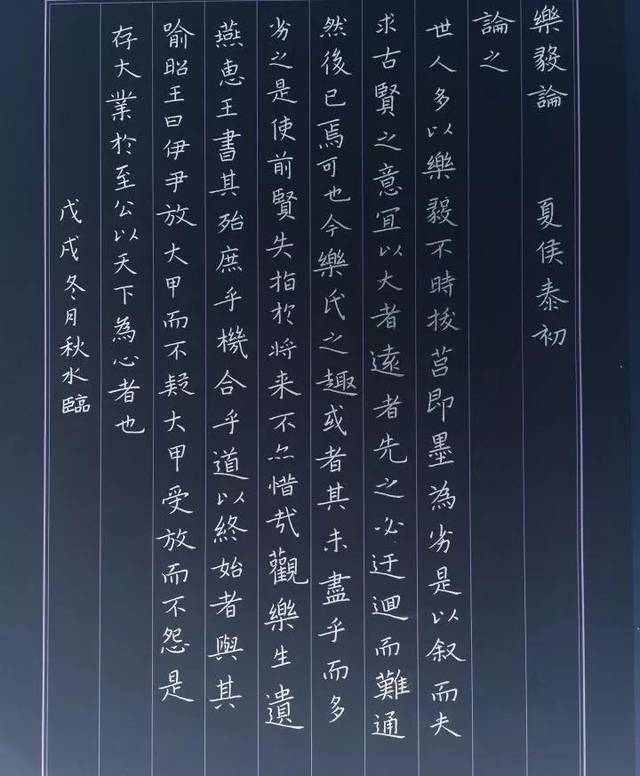 樂毅論 夏侯泰初
論之
世人多以樂毅不時拔莒即墨為劣是以叙而夫
求古賢之意宜以大者遠者先之必迂迴而難通
然後已焉可也今樂氏之趣或者其未盡乎而多
劣之是使前賢失指於將来不亦惜哉觀樂生遺
燕惠王書其殆庶乎機合乎道以終始者與其
喻昭王曰伊尹放大甲而不疑大甲受放而不怨是
存大業於至公以天下為心者也
戊戌冬月秋水臨